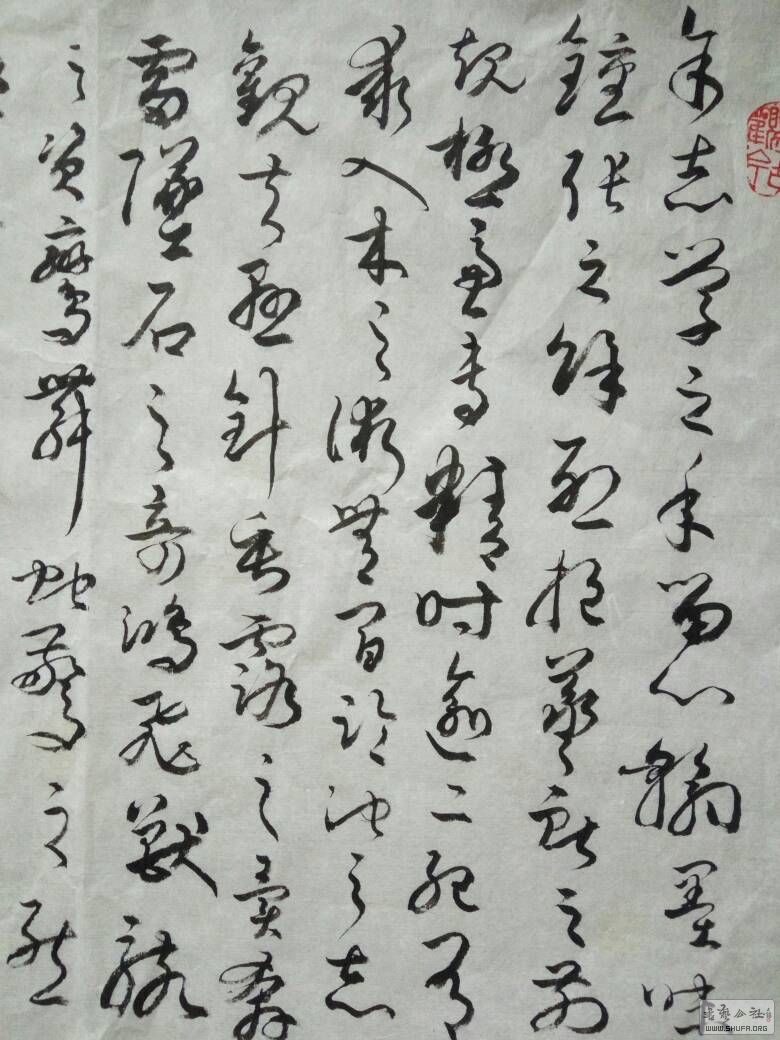 余志學之年留心翰墨味
鍾張之餘烈挹羲獻之前
規極慮專精時逾二紀有
乖入木之術無間臨池之志
觀夫懸針垂露之異奔
雷墜石之奇鴻飛獸駭
之資鸞舞蛇驚之態
書藝公社
WWW.SHUFA.ORG